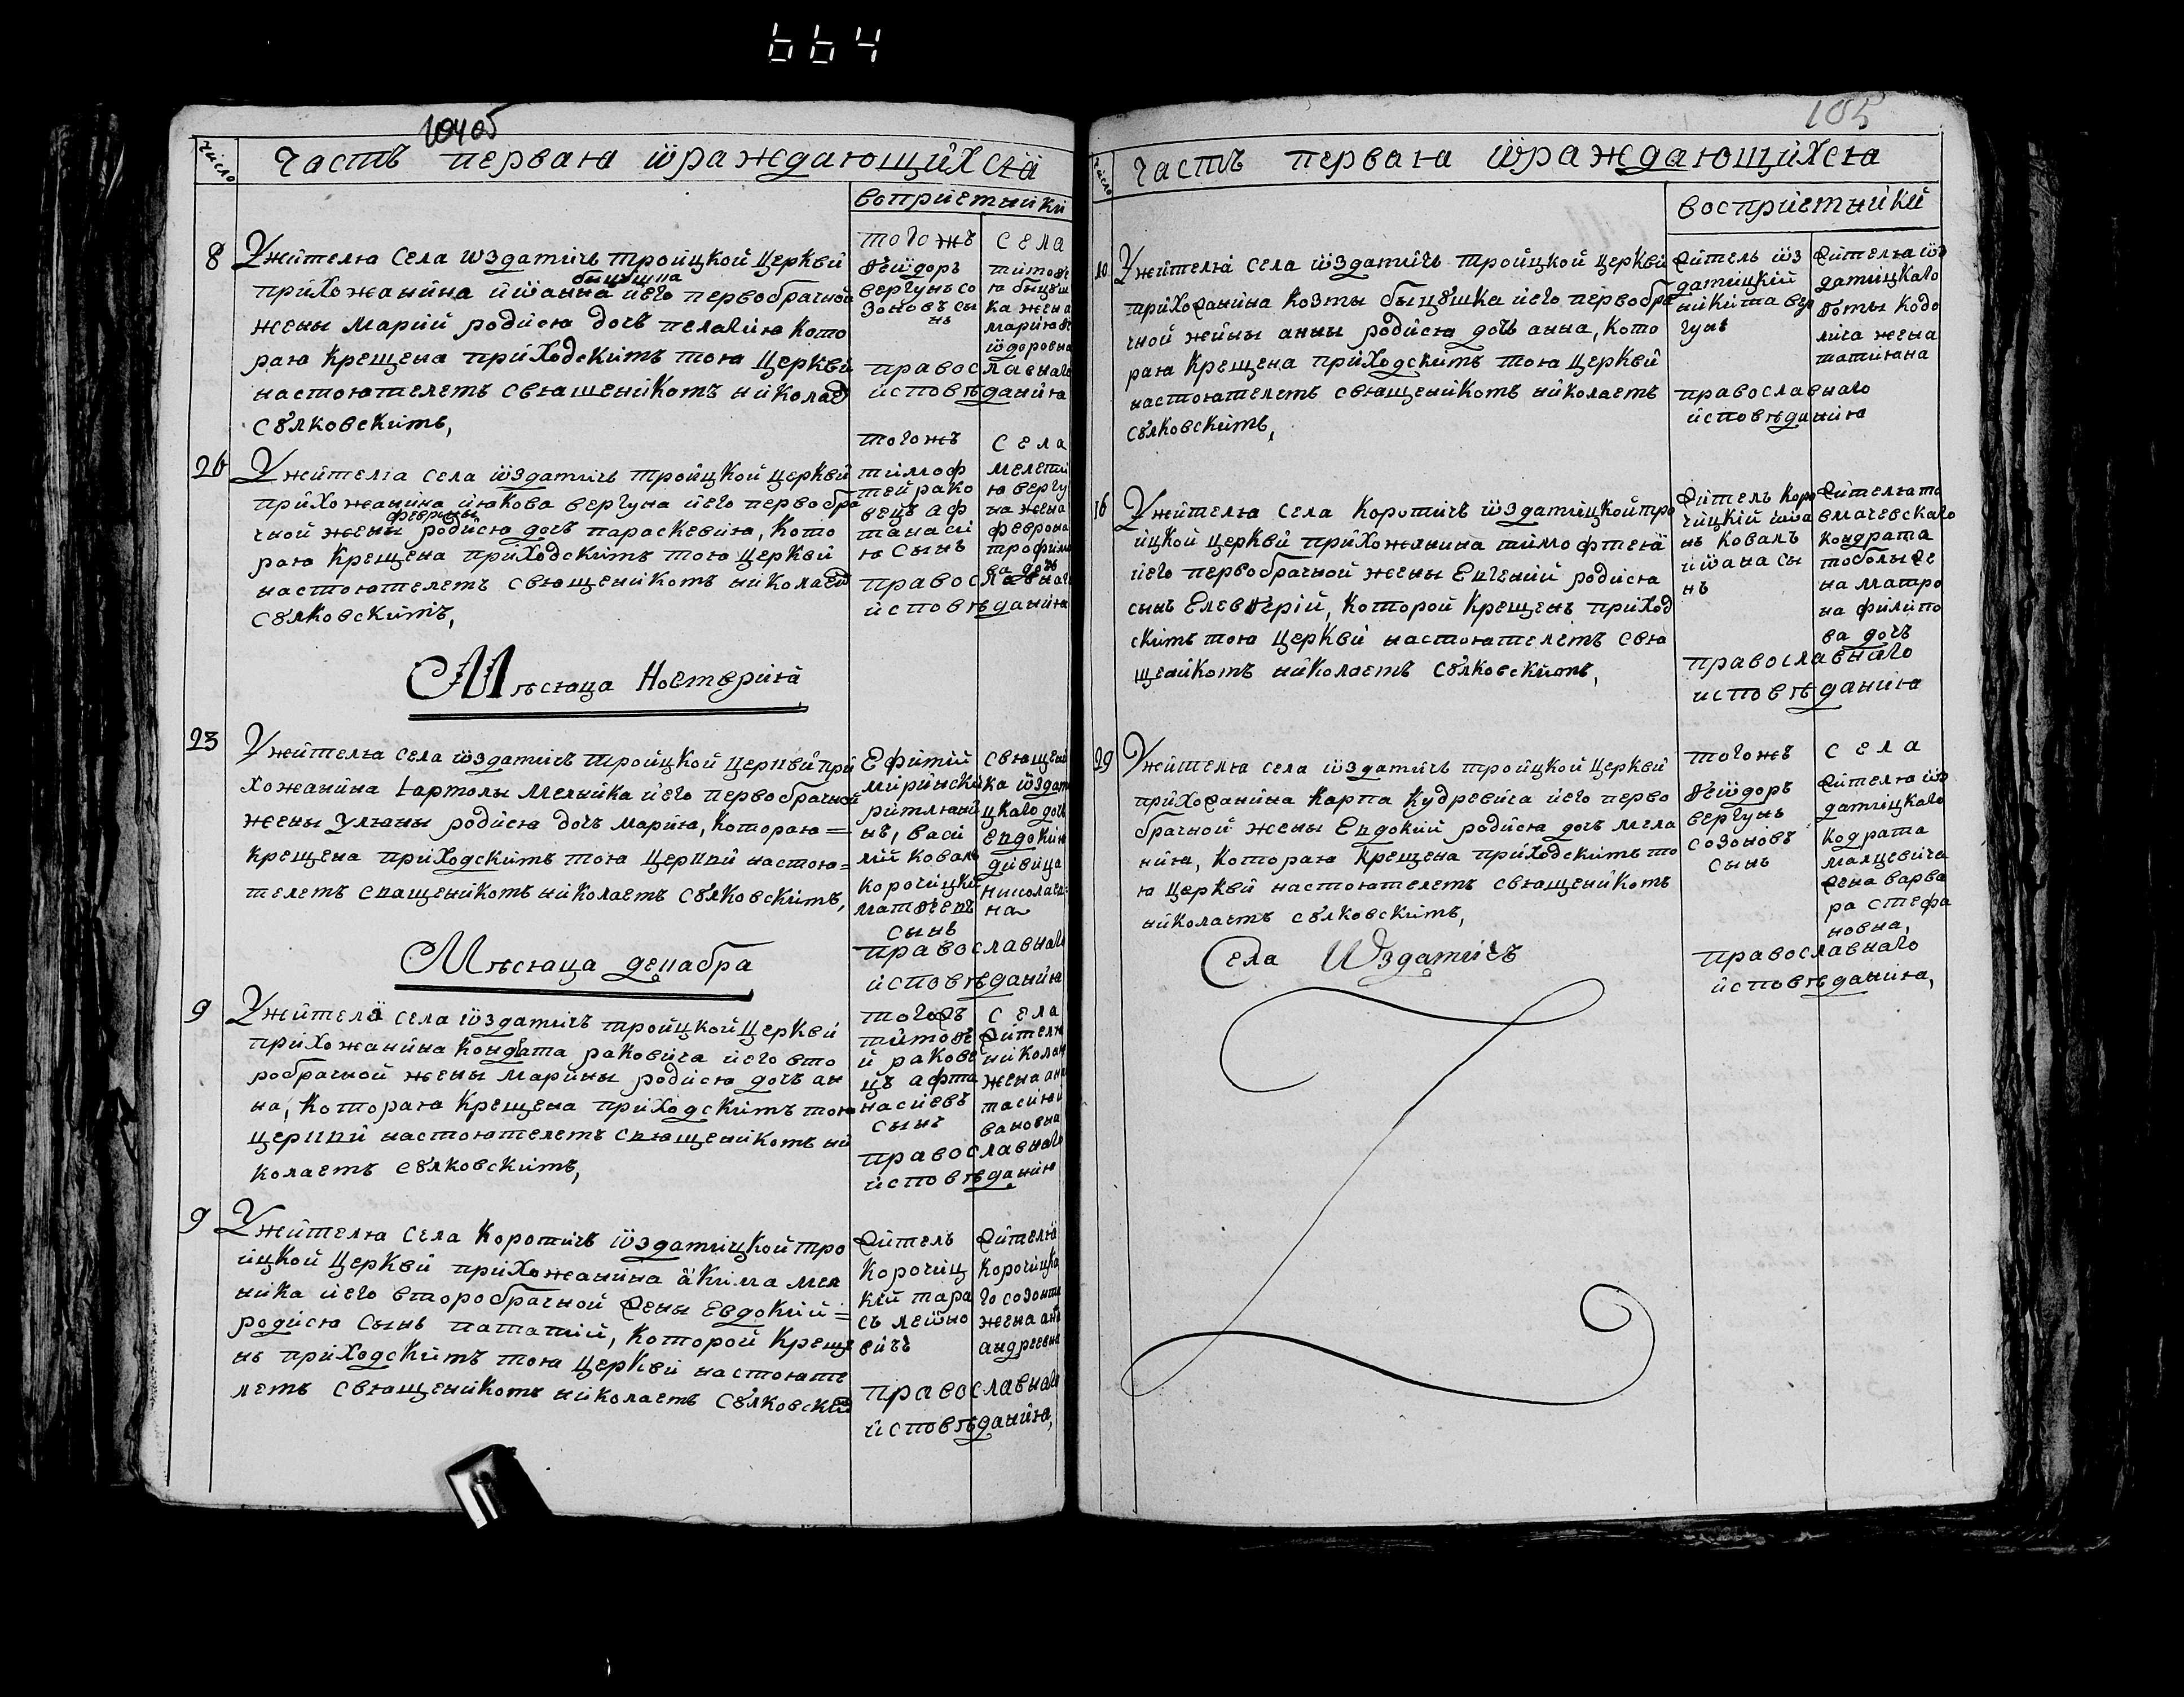 664
10405
число
часть первая ѿраждающихся
воприемники
8
Ужителя села ѿздатичъ троицкой церкви
прихожанина иѡанна бицушка його первобрачной
жены марии родися дочь пелагия кото
рая крещена приходскимъ тоя церкви
настоятелемъ священикомъ николаем
сꙋлковскимъ,
тогожъ села
ѳеѡдоръ
вергунъ со
зоновъ сы
нъ
тимоѳе
я бицуш
ка жена
мария ѳе
ѡдоровна
православнаго
исповѣдания
26
Ужителя села ѿздатичъ троицкой церкви
прихожанина иякова вергуна його первобра
чной жены февронии родися дочь параскевия, кото
рая крещена приходскимъ тоя церкви
настоятелемъ священикомъ николаем
сꙋлковскимъ,
тогожъ села
тимоф
тей рако
вецъ аф
танаси
я сынъ
мелети
я вергу
на жена
феврона
трофимо
ва дочь
православнаго
исповѣдания
Мѣсяца Ноемврия
23
Ужителя села ѿздатичъ троицкой церкви при
хожанина бартолы мелника його первобрачной
жены улюны родися дочь мария, которая=
крещена приходскимъ тоя церкви настоя=
телемъ священикомъ николаемъ сꙋлковскимъ,
Ефимий
миринский
римляни
нъ, васи
лий коваль
корочицки
матѳеевъ
сынъ
священи
ка ѿздати
цкаго дочь
Евдокия
дивица
николаев=
на
православнаго
исповѣдания
Мѣсяца декабра
9
Ужителя села ѿздатичъ троицкой церкви
прихожанина кондрата раковича його вто
робрачной жены марины родися дочь ан
на, которая крещена приходскимъ тоя
церкви настоятелемъ священикомъ ни
колаемъ сꙋлковскимъ,
тогожъ села
тимоѳе
й ракове
цъ афта
насиевъ
сынъ
жителя
николая
жена ана
тасия и
вановна
православнаго
исповѣдания
9
Ужителя села Коротичъ ѿздатицкой тро
ицкой церкви прихожанина акима мел
ника його второбрачной жены Евдокии=
родися сынъ потапий, которой креще
нъ приходскимъ тоя церкви настояте
лемъ священикомъ николаемъ сꙋлковским
житель
корочиц
кий тара
съ леѡно
вичъ
жителя
корочицка
го созонта
жена ана
андреевна
православнаго
исповѣдания,
105
число
часть первая ѿраждающихся
восприемники
10
Ужителя села ѿздатичъ троицкой церкви
прихожанина козмы бицушка його первобра
чной жены анны родися дочь анна, кото
рая крещена приходскимъ тоя церкви
настоятелемъ священикомъ николаемъ
сꙋлковскимъ,
житель ѿз
датицкий
никита вер
гунъ
жителя ѿз
датицкаго
ѳомы кодо
лича жена
татияна
православнаго
исповѣдания
16
Ужителя села Коротичъ ѿздатицкой тро
ицкой церкви прихожанина тимофтея
його первобрачной жены Евгении родися
сынъ Елевѳерий, которой крещенъ приход
скимъ тоя церкви настоятелемъ свя
щеникомъ николаемъ сꙋлковскимъ,
житель коро
чицкий иѡа
нъ коваль
иѡана сы
нъ
жителя то
вмачевскаго
кондрата
тоболы же
на матро
на филипо
ва дочь
православнаго
исповѣдания
29
Ужителя села ѿздатичъ троицкой церкви
прихожанина карпа кудревича його перво
брачной жены Евдокии родися дочь мела
ния, которая крещена приходскимъ то
я церкви настоятелемъ священикомъ
николаемъ сꙋлковскимъ,
тогожъ села
ѳеѡдоръ
вергунъ
созоновъ
сынъ
жителя ѿз
датицкаго
кодрата
малцевича
жена варва
ра стефа
новна,
православнаго
исповѣдания,
Села Ѿздатичъ